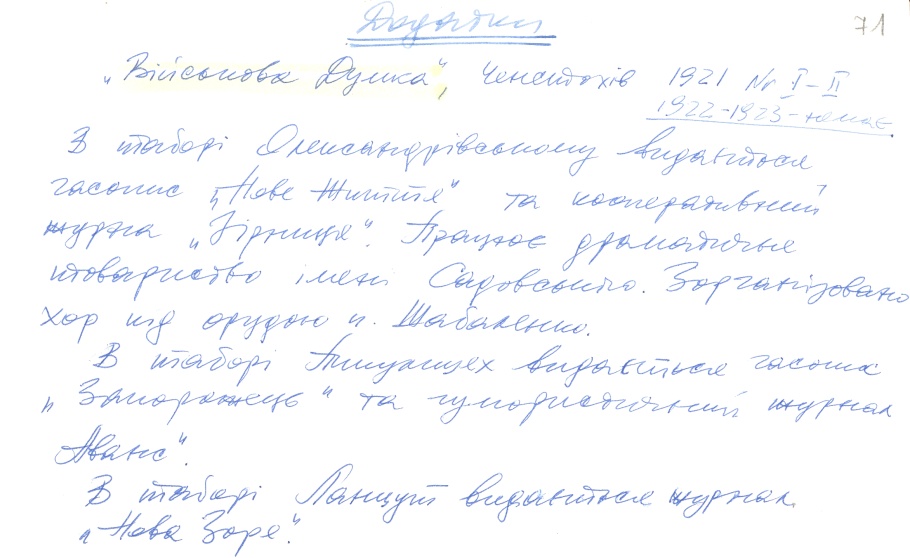 Додатки
71
„Військова Думка", Ченстохів 1921 Nr I-II
1922-1923-немає.
В таборі Олександрівському видається
часопис „Нове Життя" та кооперативний
журнал „Зірниця". Працює драматичне
товариство імені Садовського. Зорганізовано
хор під орудою п. Шабаленко.
В таборі видається часопис
„Запорожець" та гумористичний журнал
Аванс".
В таборі Ланцут видається журнал
„Нова Зоря".